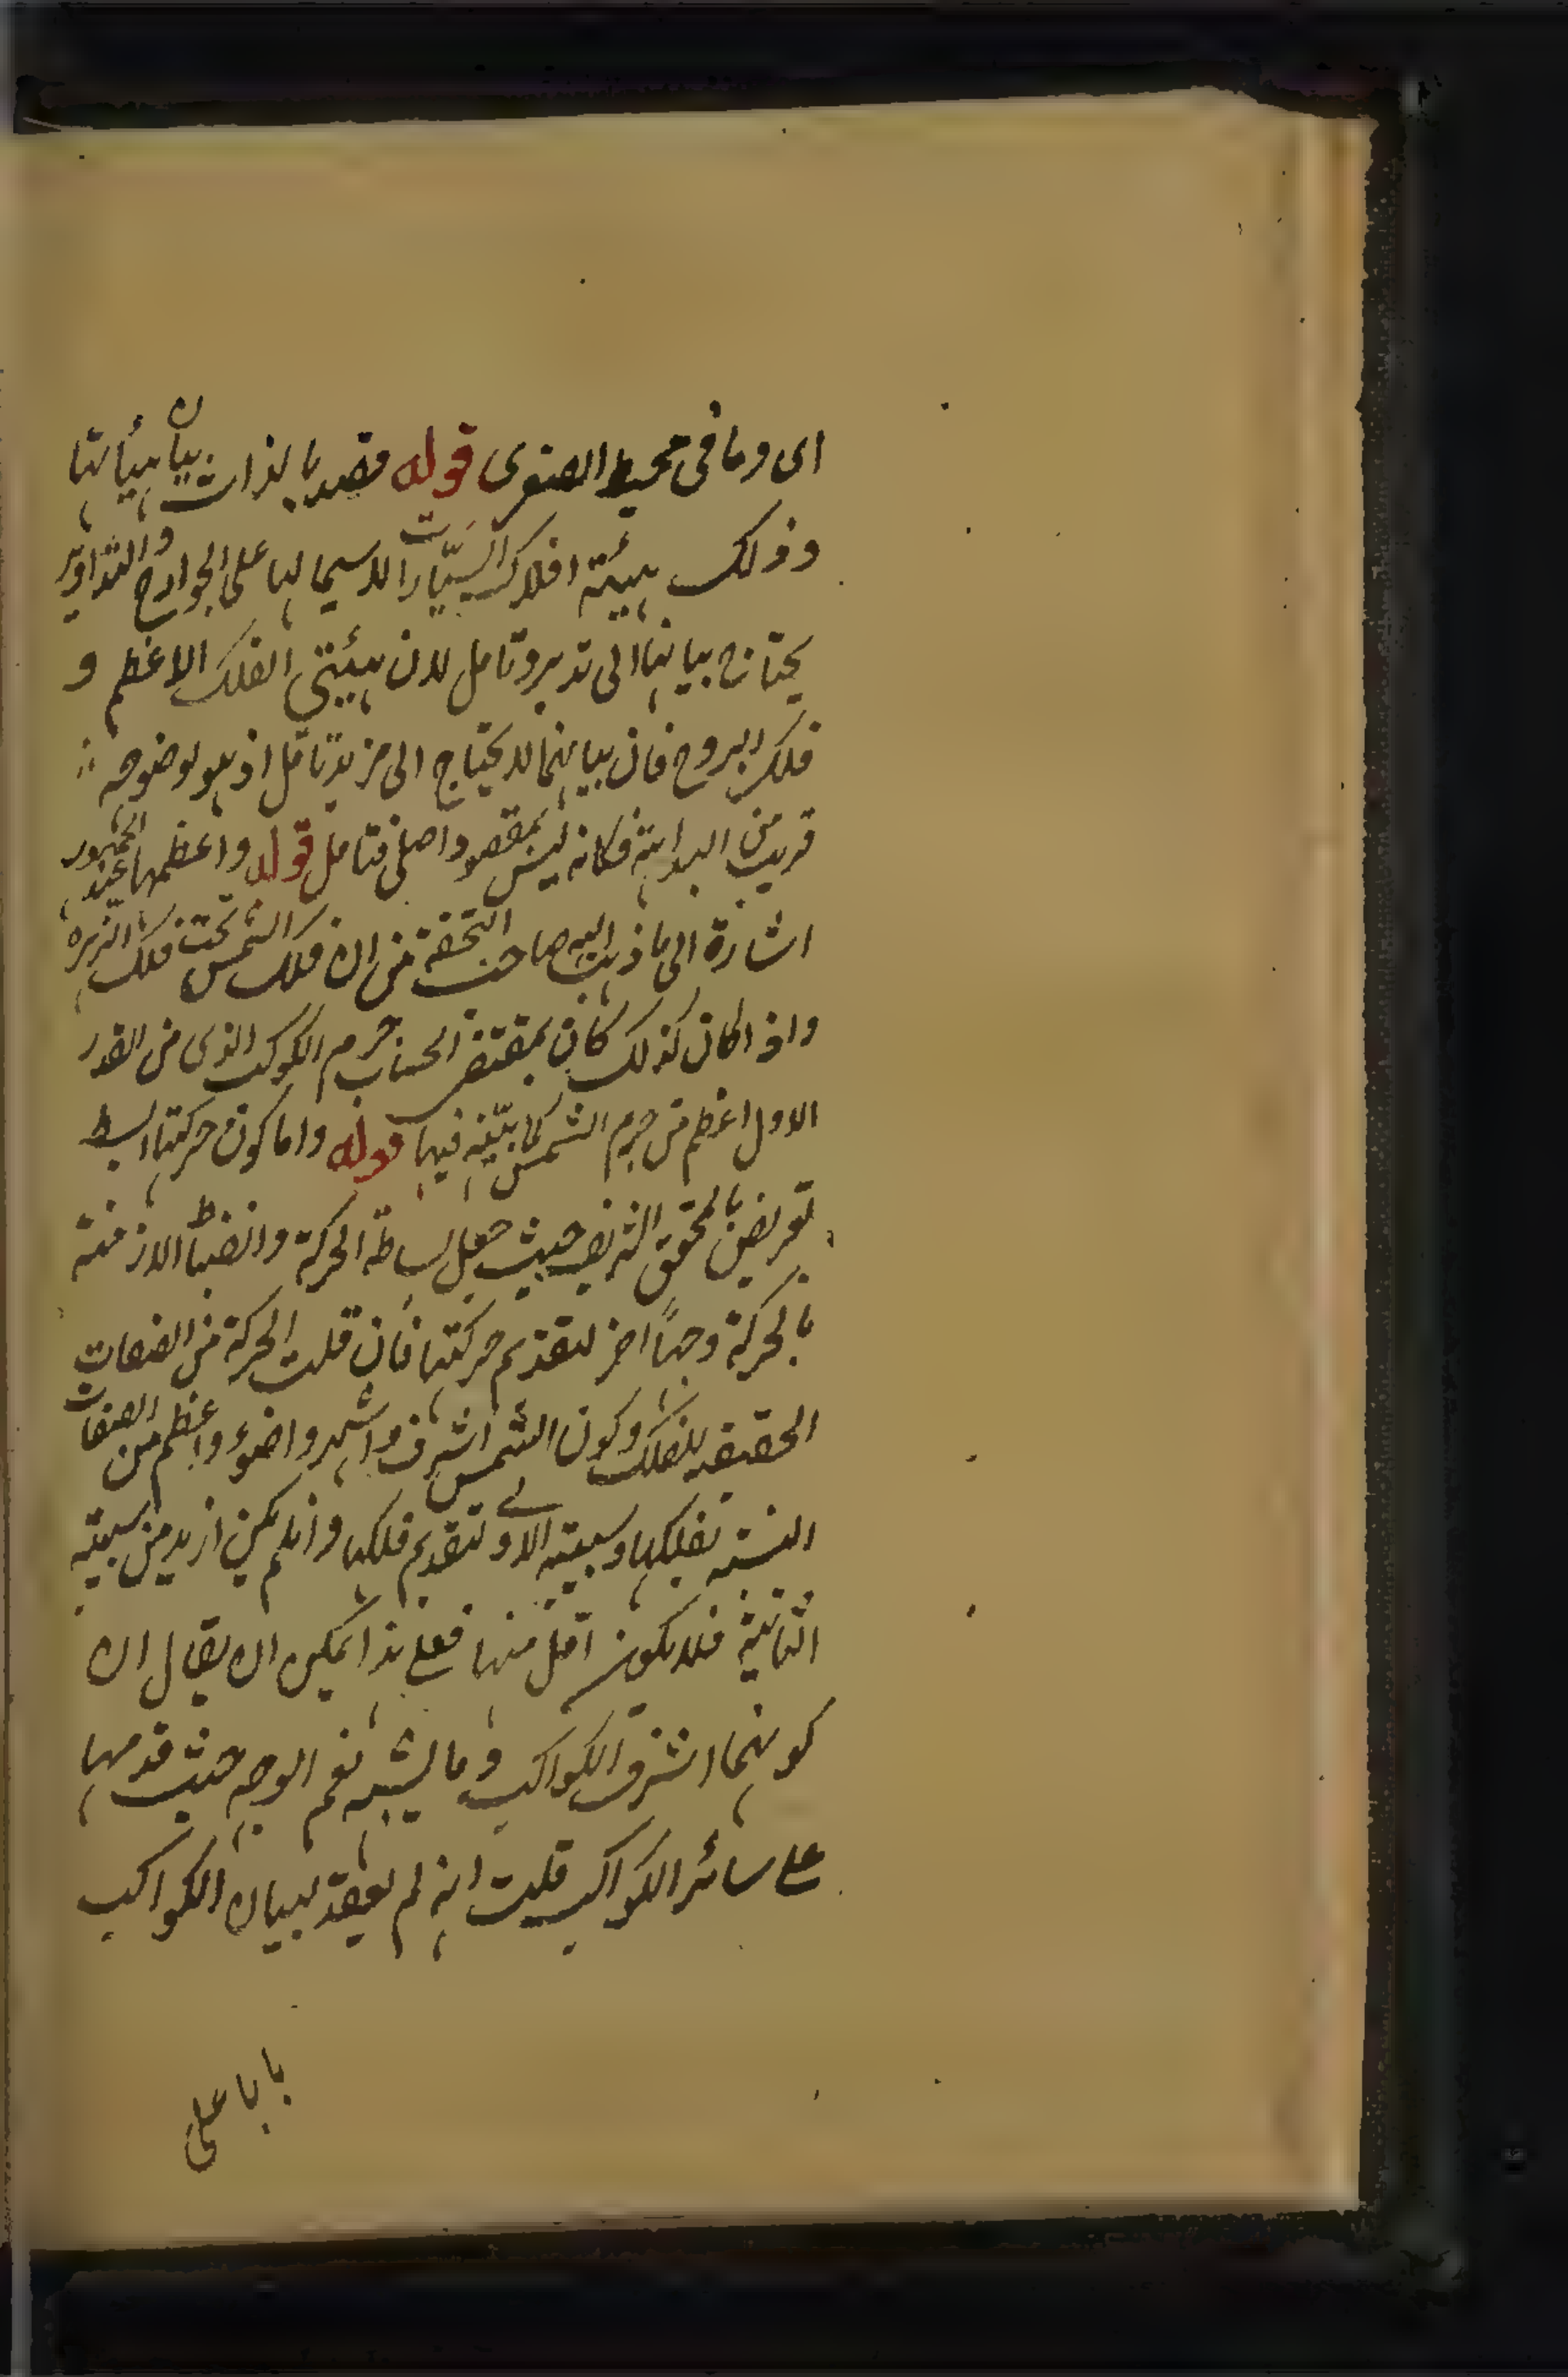 اى وما فى محيط الصغرى قوله قصد بالذات بيان هيأتها
وذلك هيئة افلاك السيّارات لاسيما لها على الجوارح والتداوير
يحتاج بيانها الى تدبر وتامل لان هيئتى الفلك الاعظم و
فلك البروج فان بيانهما لا يحتاج الى مزيد تامل اذ هو لوضوحه
قريب من البداهة فكانه ليس بمقصود اصلى فتامل قوله واعظمها عند الجمهور
اشارة الى ما ذهب اليه صاحب التحفة من ان فلك الشمس تحت فلك الزهرة
واذا كان كذلك كان بمقتضى الحساب جرم الكوكب الذى من القدر
الاول اعظم من جرم الشمس كما بيّنه فيها قوله واما كون حركتها ابسط
تعريض بالمحقق الشريف حيث جعل بساطة الحركة وانضباط الازمنة
بالحركة وجهاً اخر لتقديم حركتها فان قلت الحركة من الصفات
الحقيقة للفلك وكون الشمس اشرف واشهر واضوء واعظم من الصفات
النسبة لفلكها وسببية الاولى لتقديم فلكها وان لم يكن ازيد من سببية
الثانية فلا يكون اقل منها فعلى هذا يمكن ان يقال ان
كونهما اشرف الكواكب وما يشبه نعم الوجه حيث قدمها
على سائر الكواكب قلت انه لم يعقد لبيان الكواكب
بابا على